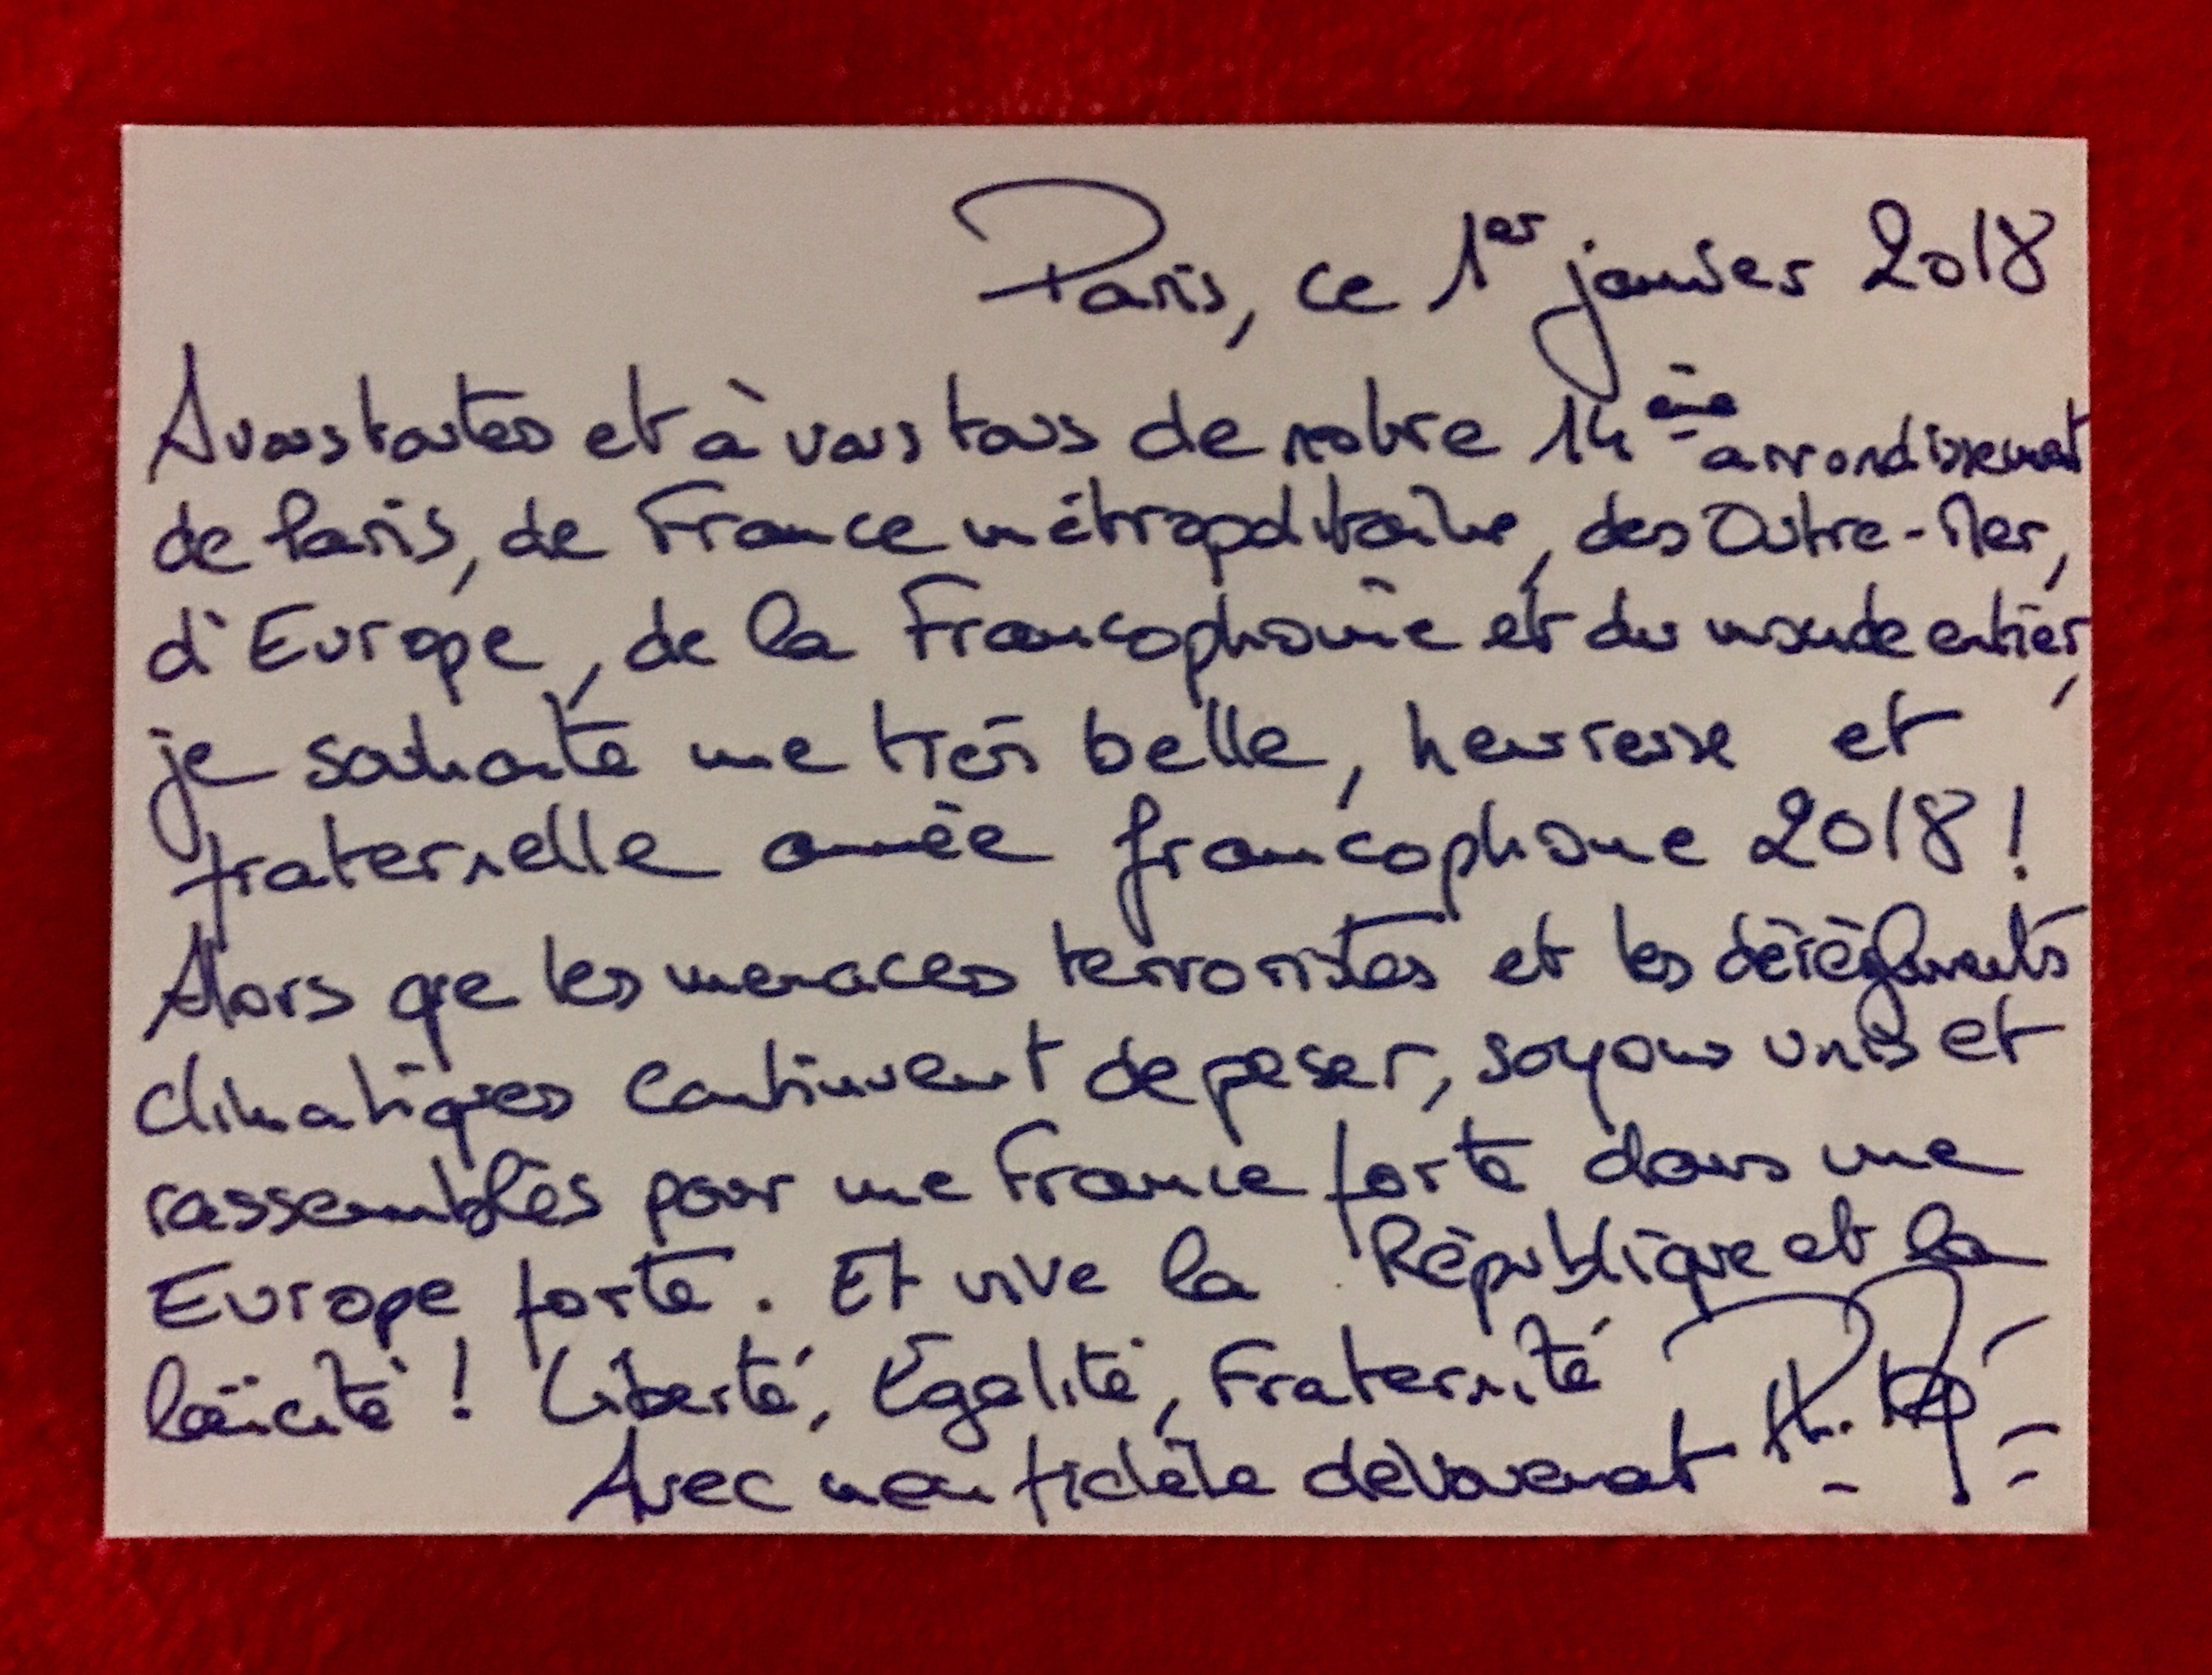 Paris, ce 1er janvier 2018
A vous toutes et à vous tous de notre 14ème arrondissement
de Paris, de France métropolitaine, des Outre-Mer,
d'Europe, de la Francophonie et du monde entier,
je souhaite une très belle, heureuse et
fraternelle année francophone 2018 !
Alors que les menaces terroristes et les dérèglements
climatiques continuent de peser, soyons unis et
rassemblés pour une France forte dans une
Europe forte. Et vive la République et la
laïcité ! Liberté, Égalité, Fraternité
Avec mon fidèle dévouement